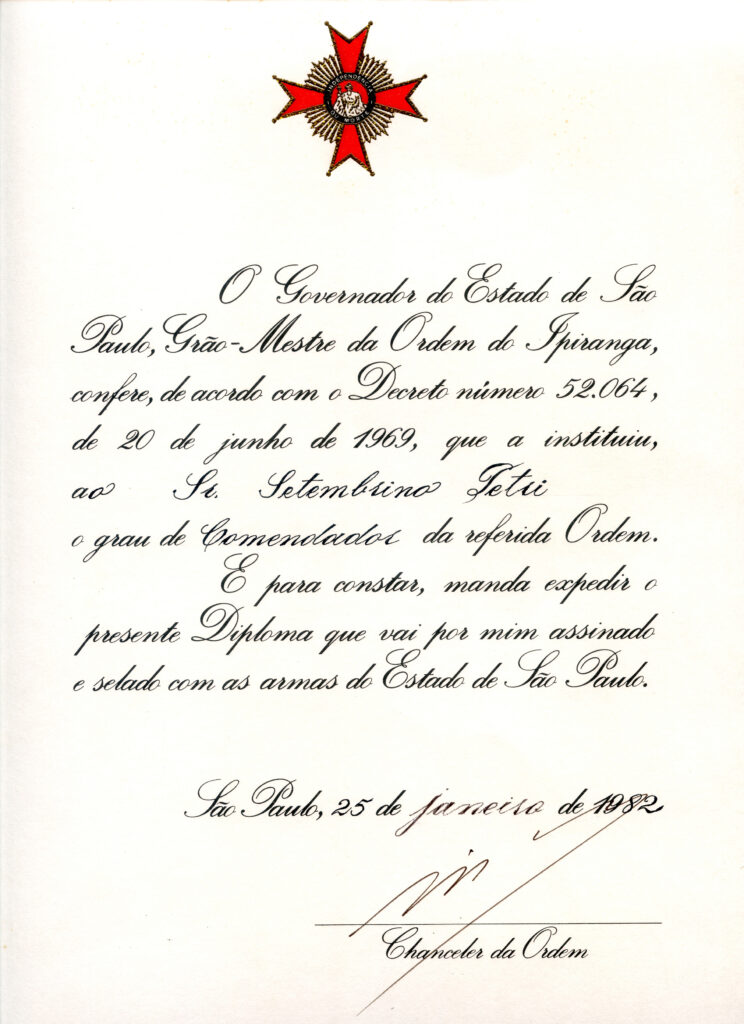 INDEPENDENCIA
OU MORTE
O Governador do Estado de São
Paulo, Grão-Mestre da Ordem do Ipiranga,
confere, de acordo com o Decreto número 52.064,
de 20 de junho de 1969, que a instituiu,
ao Sr. Setembrino Petri
o grau de Comendador da referida Ordem.
E para constar, manda expedir o
presente Diploma que vai por mim assinado
e selado com as armas do Estado de São Paulo.
São Paulo, 25 de janeiro de 1982
Chanceler da Ordem